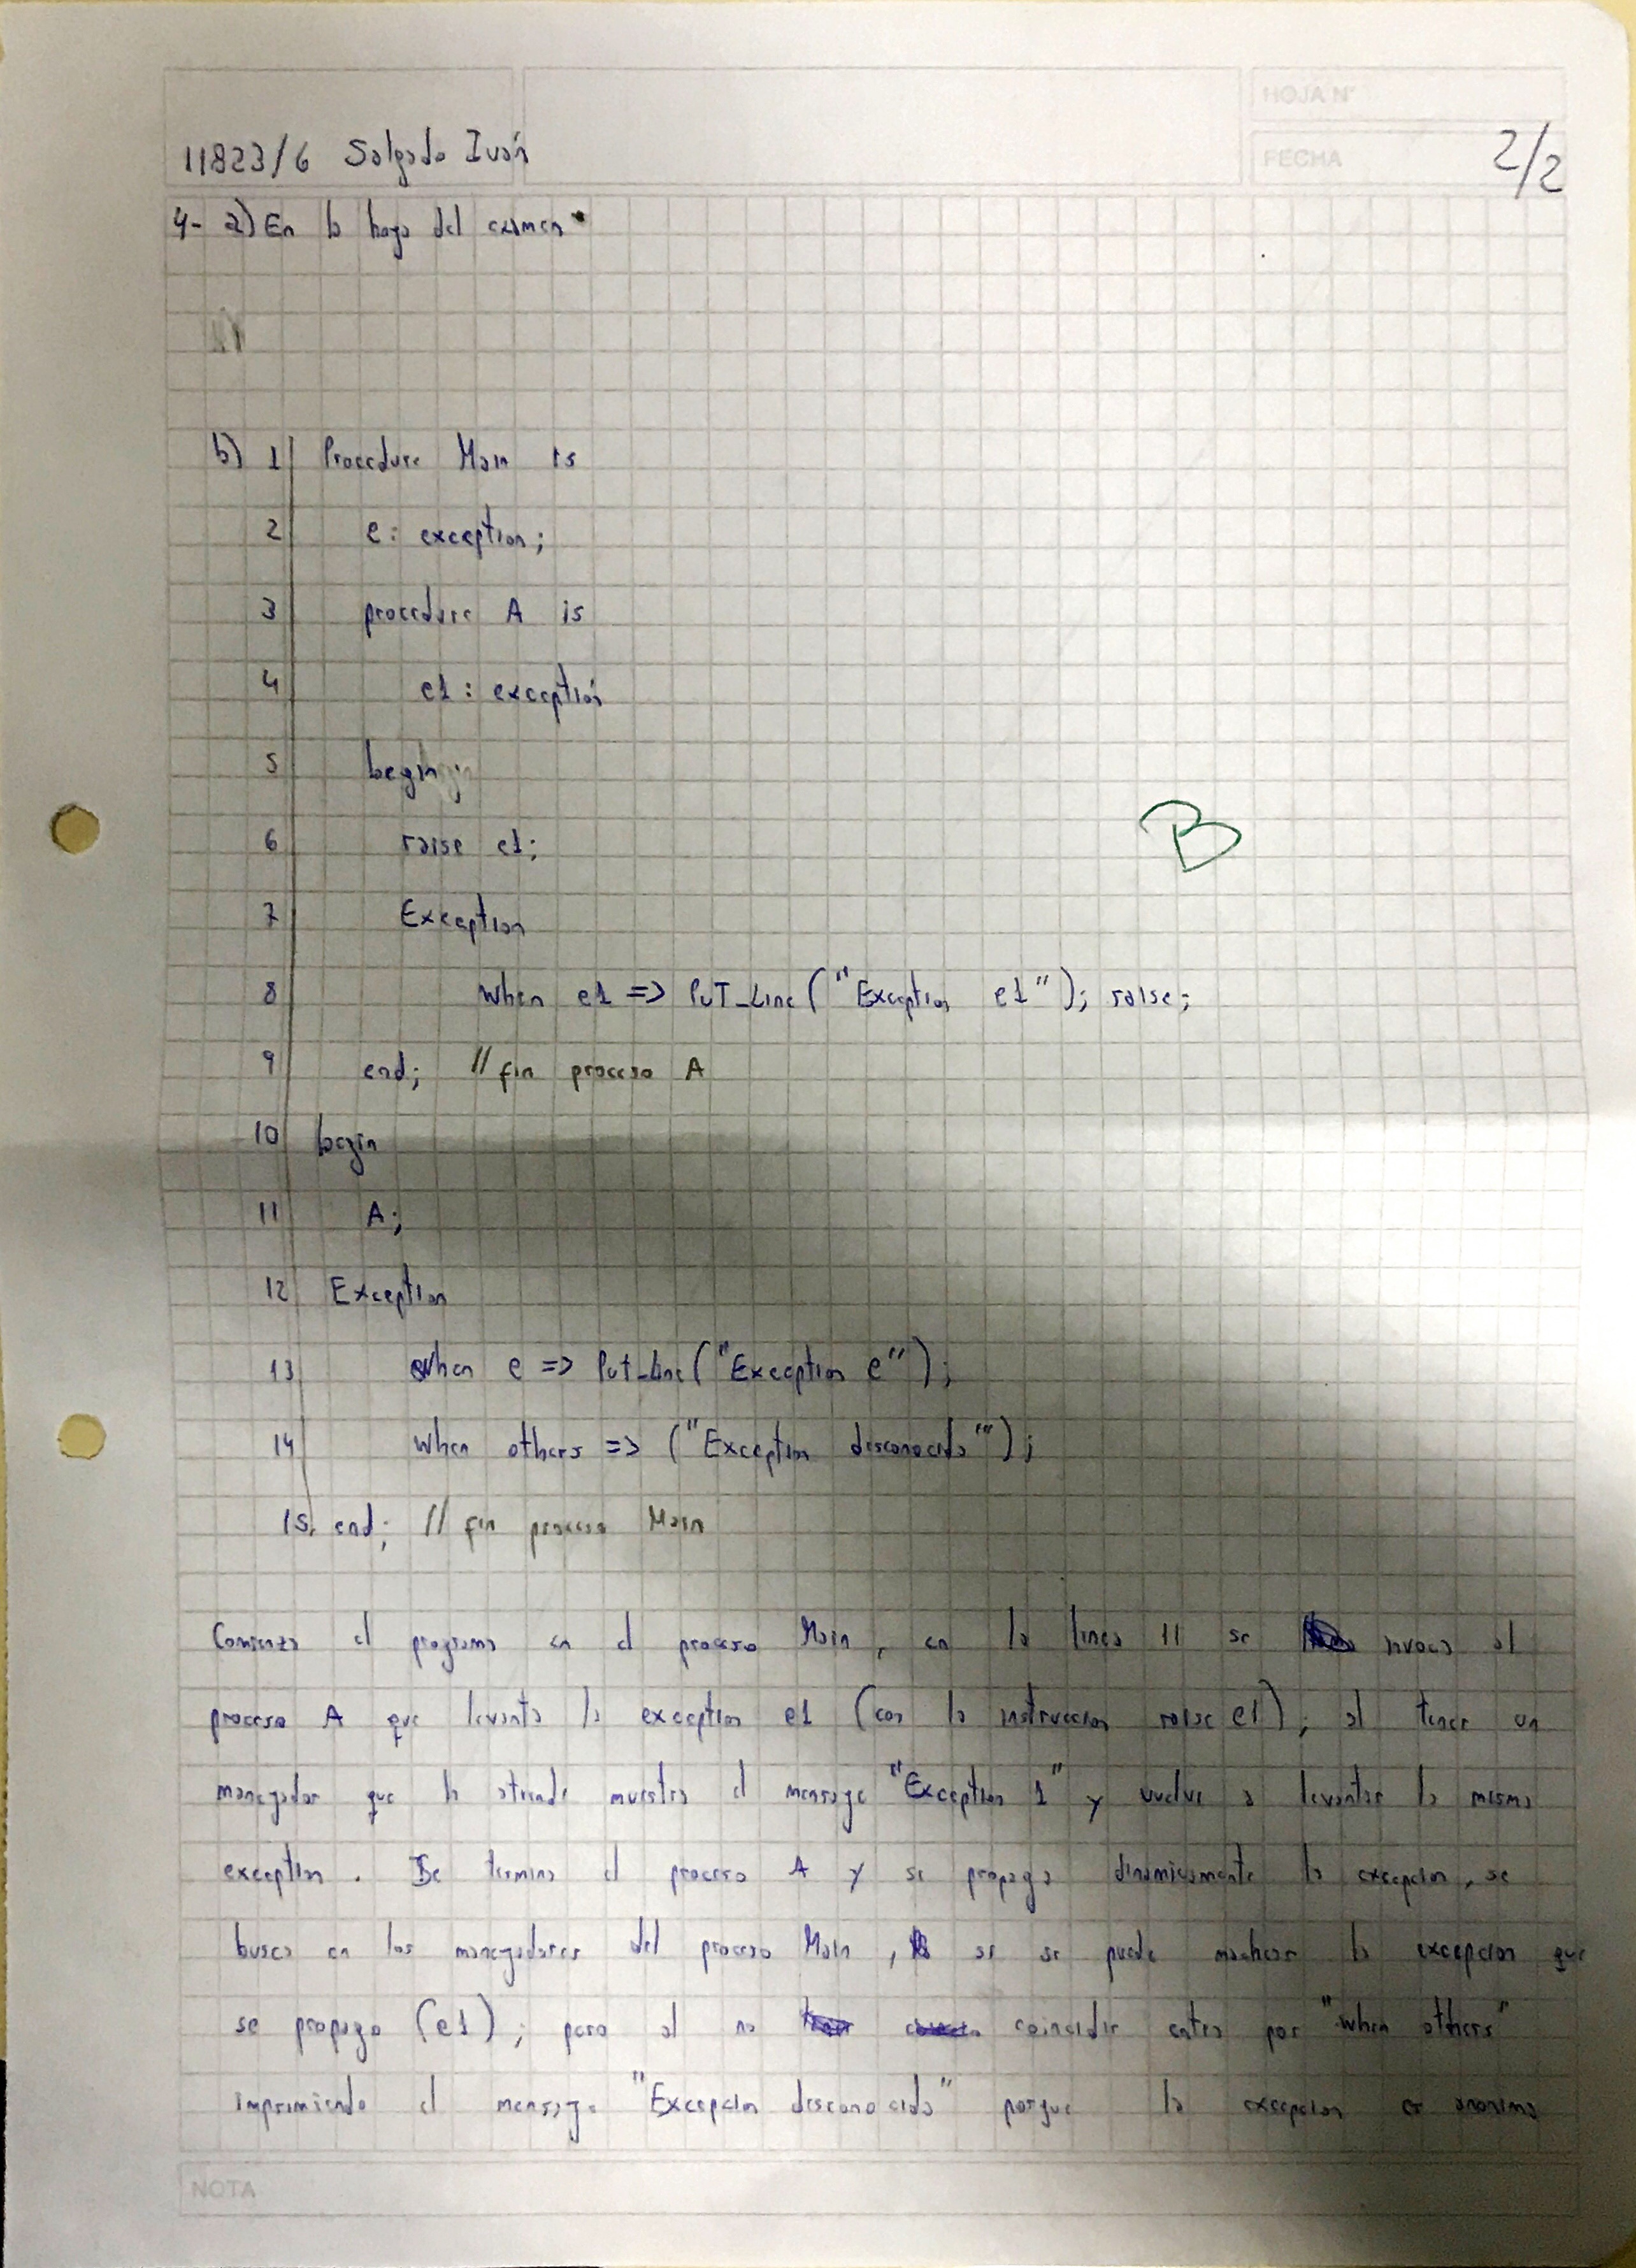 HOJA N°
11823/6 Salgado Iván
FECHA
2/2
4- a) En la hoja del examen
b) 1 Procedure Main is
2 e: exception;
3 procedure A is
4 e1: exception
5 begin;
6 raise e1;
7 Exception
B
8 when e1 => PuT_Line("Exception e1"); raise;
9 end; // fin proceso A
10 begin
11 A;
12 Exception
13 when e => Put_Line("Exception e");
14 when others => ("Exception desconocida");
15 end; // fin proceso Main
Comienza el programa en el proceso Main, en la linea 11 se invoca al
proceso A que levanta la exception e1 (con la instruccion raise e1); al tener un
manejador que la atiende muestra el mensaje "Exception 1" y vuelve a levantar la misma
exception. Se termina el proceso A y se propaga dinamicamente la excepcion, se
busca en los manejadores del proceso Main, si se puede machear la excepcion que
se propago (e1); pero al no coincidir entra por "when others"
imprimiendo el mensaje "Excepcion desconocida" porque la excepcion es anonima
NOTA